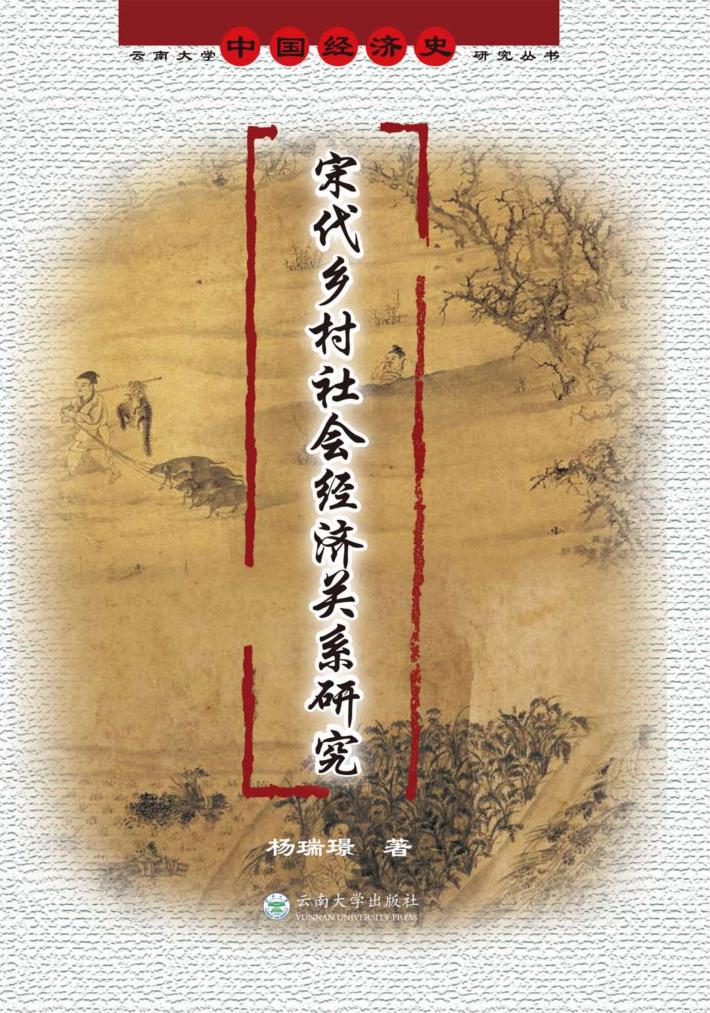 云南大学中国经济史研究丛书
宋代乡村社会经济关系研究
杨瑞璟 著
云南大学出版社
YUNNAN UNIVERSITY PRESS